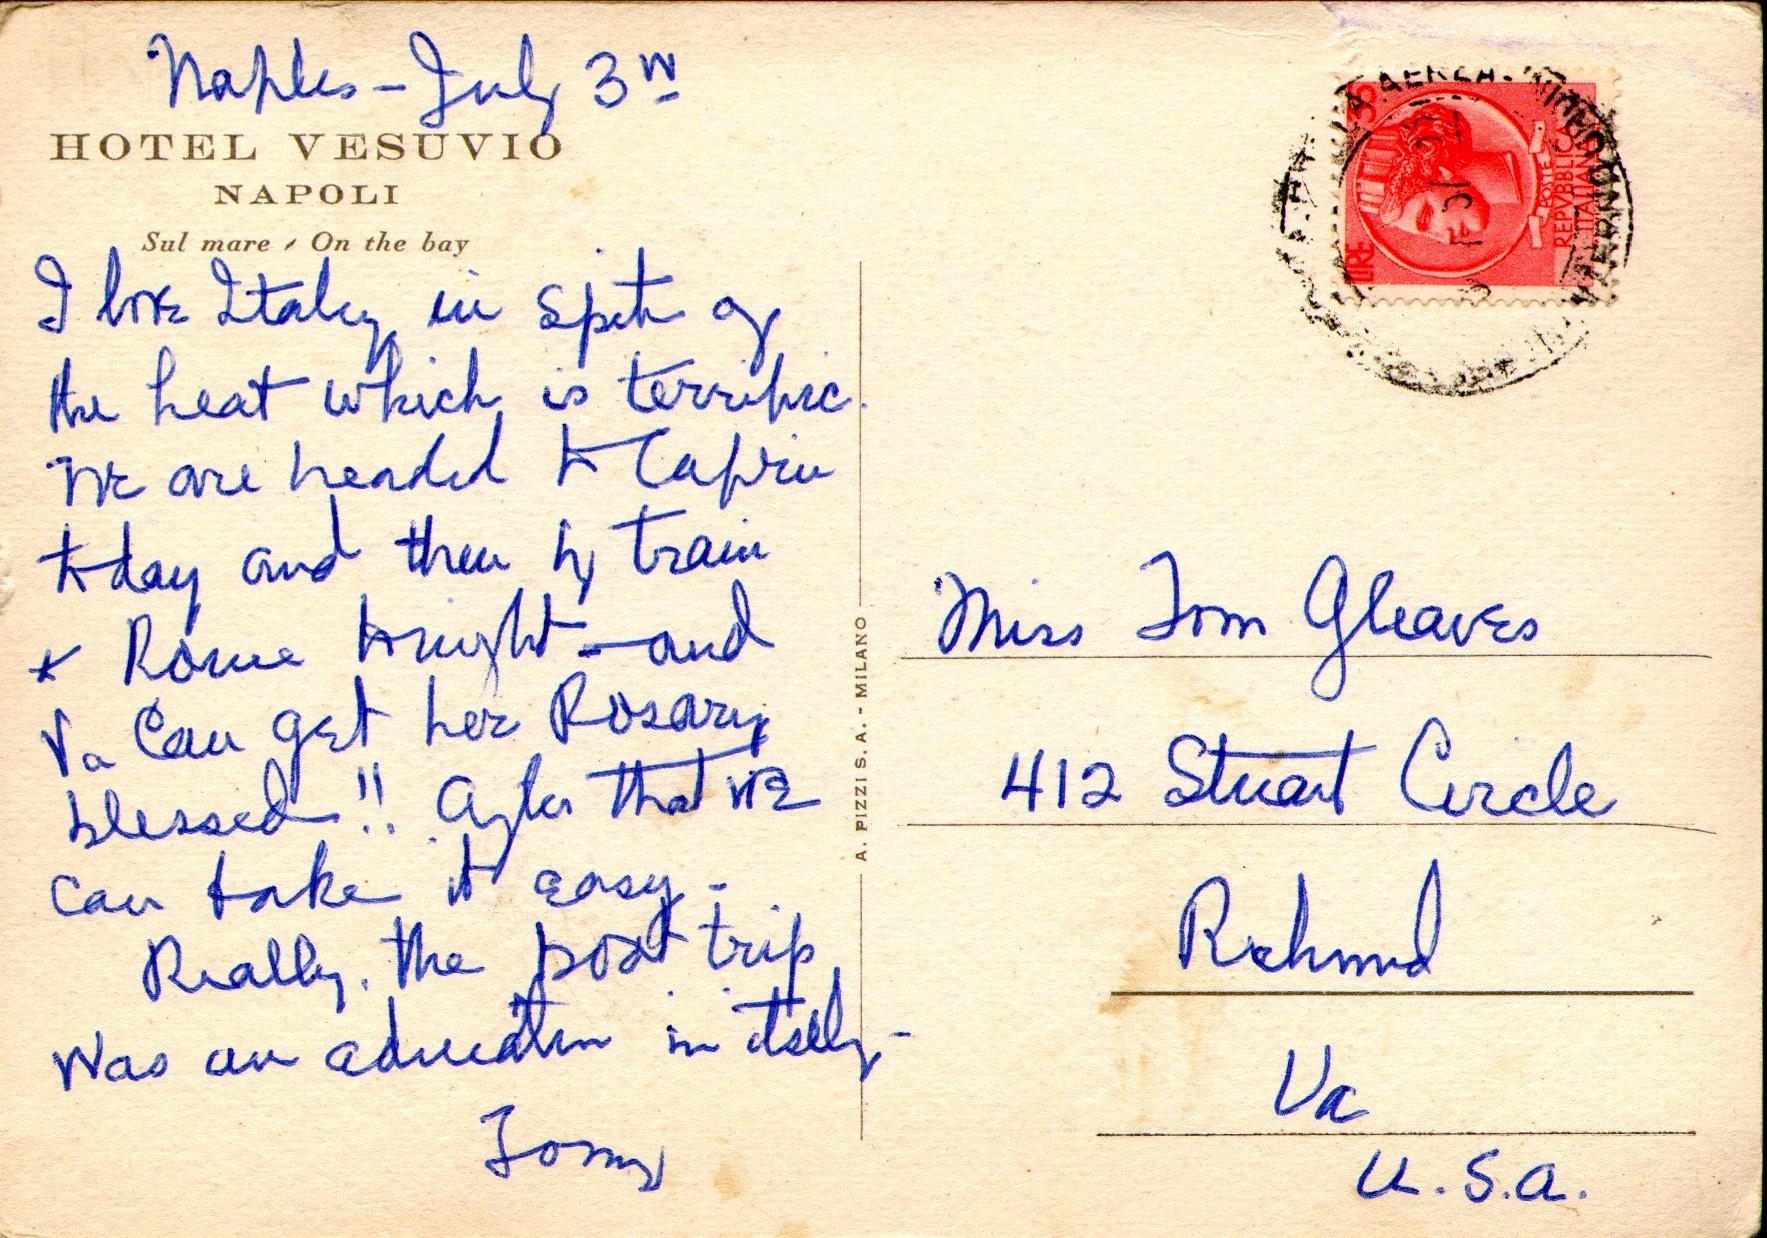 Naples - July 3rd
HOTEL VESUVIO
NAPOLI
Sul mare - On the bay
I love Italy in spite of
the heat which is terrific.
We are headed to Capri
today and then by train
to Rome tonight - and
Va can get her Rosary
blessed!! After that we
can take it easy -
Really, the boat trip
was an education in itself -
Tony
A. PIZZI S. A. - MILANO
LIRE
POSTE
REPVBBLICA
ITALIANA
Miss Tom Gleaves
412 Stuart Circle
Richmond
Va
U.S.A.